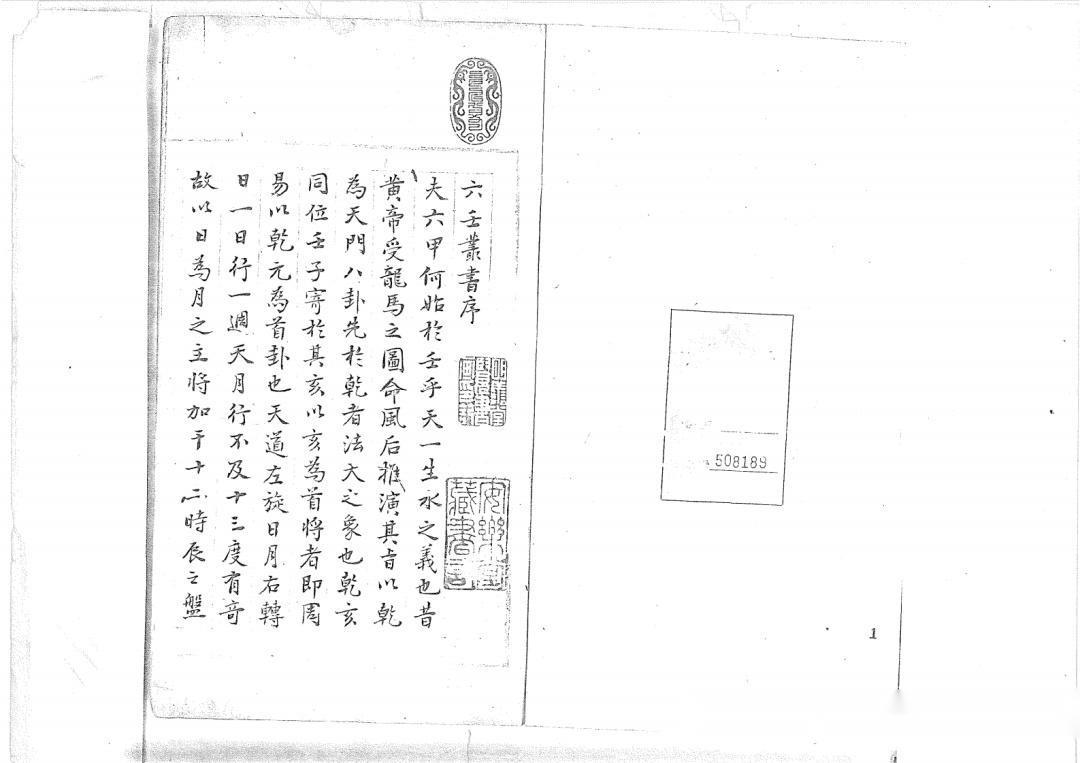 六壬叢書序
夫六甲何始於壬乎天一生水之義也昔
黃帝受龍馬之圖命風后推演其旨以乾
為天門八卦先於乾者法天之象也乾亥
同位壬子寄於其亥以亥為首將者即周
易以乾元為首卦也天道左旋日月右轉
日一日行一週天月行不及十三度有奇
故以日為月之主將加于十二時辰之盤
安樂堂
藏書記
508189
1